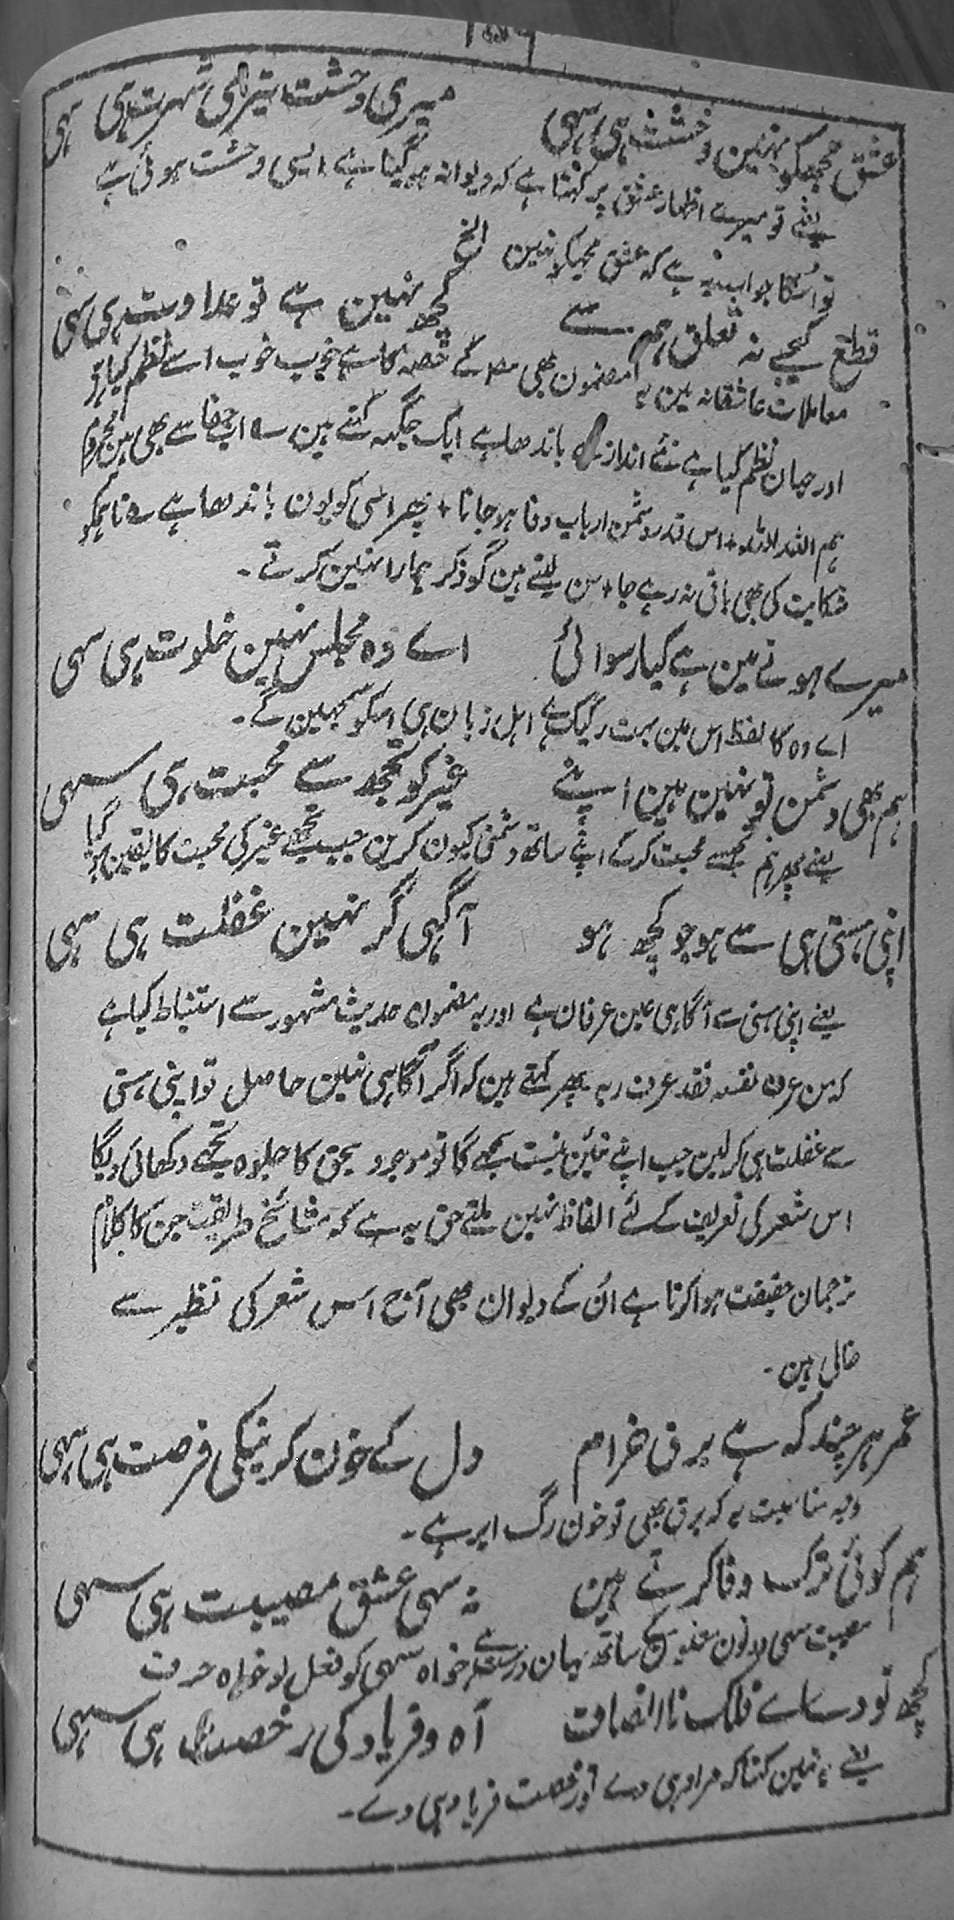 عشق مجھکو نہین وحشت ہی سہی میری وحشت تیری شہرت ہی سہی
یعنے تو میرے اظہار عشق پر کہتا ہے کہ دیوانہ ہو گیا ہے ایسی وحشت ہوئی ہے
تو اُسکا جواب یہ ہے کہ عشق مجھکو نہین الخ
قطع کیجے نہ تعلق ہم سے کچھ نہین ہے تو عداوت ہی سہی
معاملات عاشقانہ مین یہ مضمون بھی مصؔ کے حصہ کا ہے خوب خوب اسے نظم کیا ہے
اور جہان نظم کیا ہے نئے انداز سے باندھا ہے ایک جگہ کہتے ہین ؎ اب جفا سے بھی ہین محروم
ہم اللہ اللہ + اس قدر دشمن ارباب وفا ہو جانا + پھر اسی کو یون باندھا ہے ؎ تا ہمکو
شکایت کی بھی باقی نہ رہے جا + سن لیتے ہین گو ذکر ہمارا نہین کرتے ۔
میرے ہونے مین ہے کیا رسوائی اے وہ مجلس نہین خلوت ہی سہی
اے وہ کا لفظ اس مین بہت رکیک ہے اہل زبان ہی اسکو سمجھین گے ۔
ہم بھی دشمن تو نہین ہین اپنے غیر کو تجھ سے محبت ہی سہی
یعنے پھر ہم تجھسے محبت کرکے اپنے ساتھ دشمنی کیون کرین جب تجھے غیر کی محبت کا یقین ہو گیا
اپنی ہستی ہی سے ہو جو کچھ ہو آگہی گر نہین غفلت ہی سہی
یعنے اپنی ہستی سے آگاہی عین عرفان ہے اور یہ مضمون حدیث مشہور سے استنباط کیا ہے
کہ من عرف نفسہ فقد عرف ربہ پھر کہتے ہین کہ اگر آگاہی نہین حاصل تو اپنی ہستی
سے غفلت ہی کرلین جب اپنے تئین نیست سمجھے گا تو موجود بحق کا جلوہ تجھے دکھائی دیگا
اس شعر کی تعریف کے لئے الفاظ نہین ملتے حق یہ ہے کہ مشائخ طریقت جن کا کلام
ترجمان حقیقت ہوا کرتا ہے اُن کے دیوان بھی آج اس شعر کی نظیر سے
خالی ہین ۔
عمر ہر چند کہ ہے برق خرام دل کے خون کرنیکی فرصت ہی سہی
وجہ مناسبت یہ کہ برق بھی تو خون رگ ابر ہے ۔
ہم کوئی ترک وفا کرتے ہین نہ سہی عشق مصیبت ہی سہی
مصیبت سہی دونون معنون کے ساتھ یہان درست ہے خواہ سہی کو فعل لو خواہ حرف
کچھ تو دے اے فلک ناانصاف آہ و فریاد کی رخصت ہی سہی
یعنے یہ نہین کہتا کہ مراد ہی دے تو رخصت فریاد ہی دے ۔